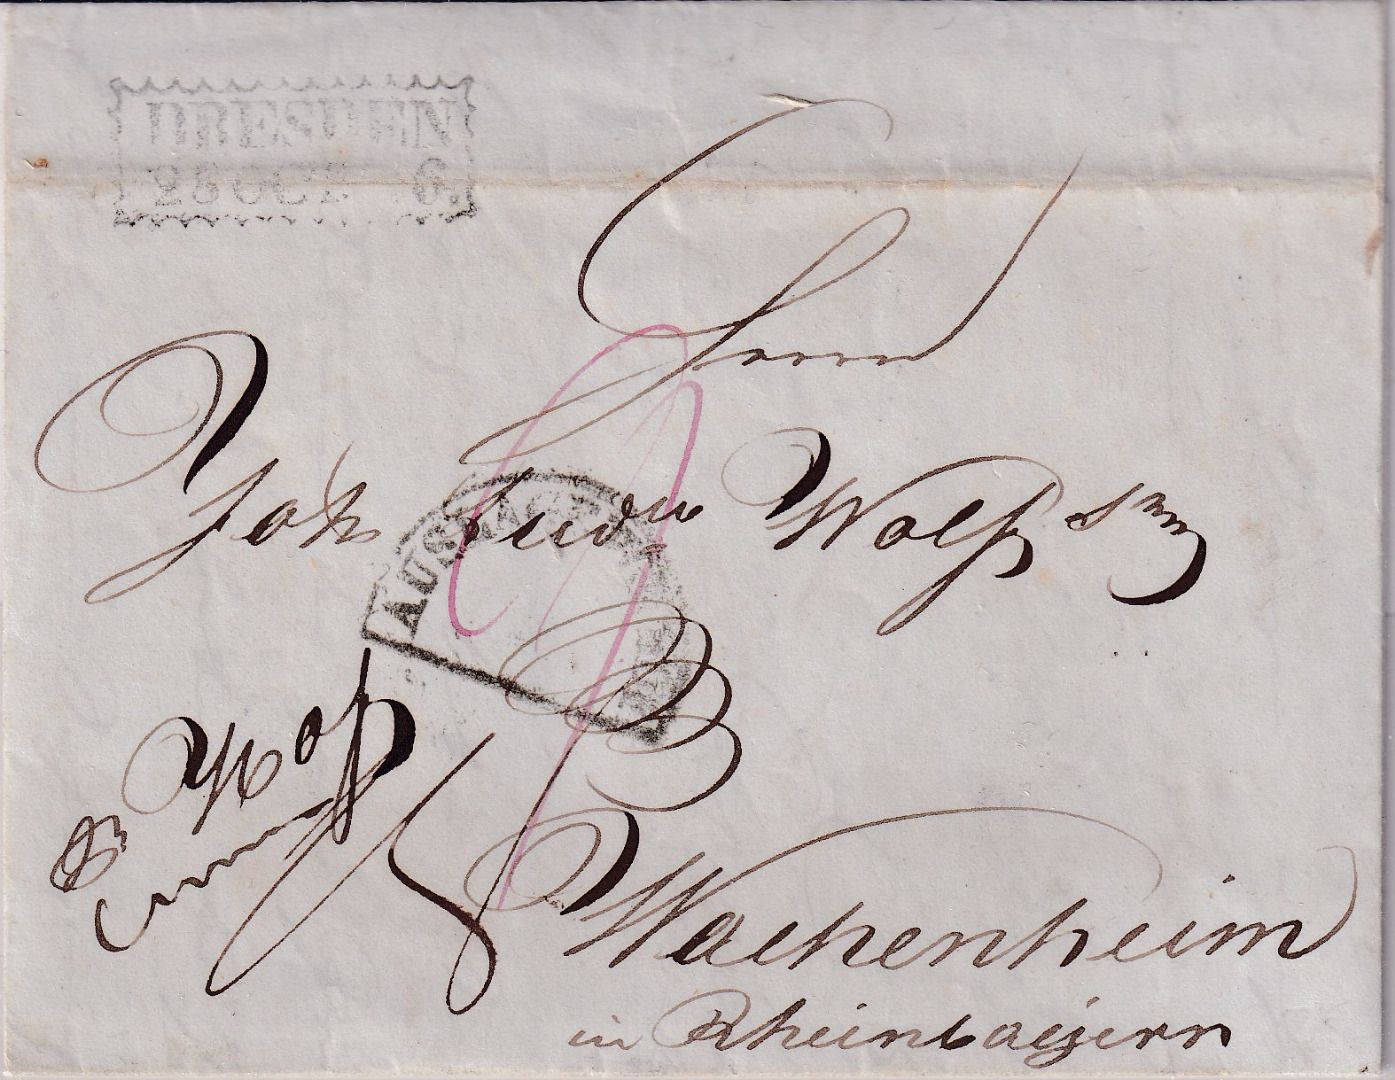 DRESDEN
28 OCT 6.
Herrn
Joh. Ludw. Wolf Senr
AUS
Wachenheim
in Rheinbayern